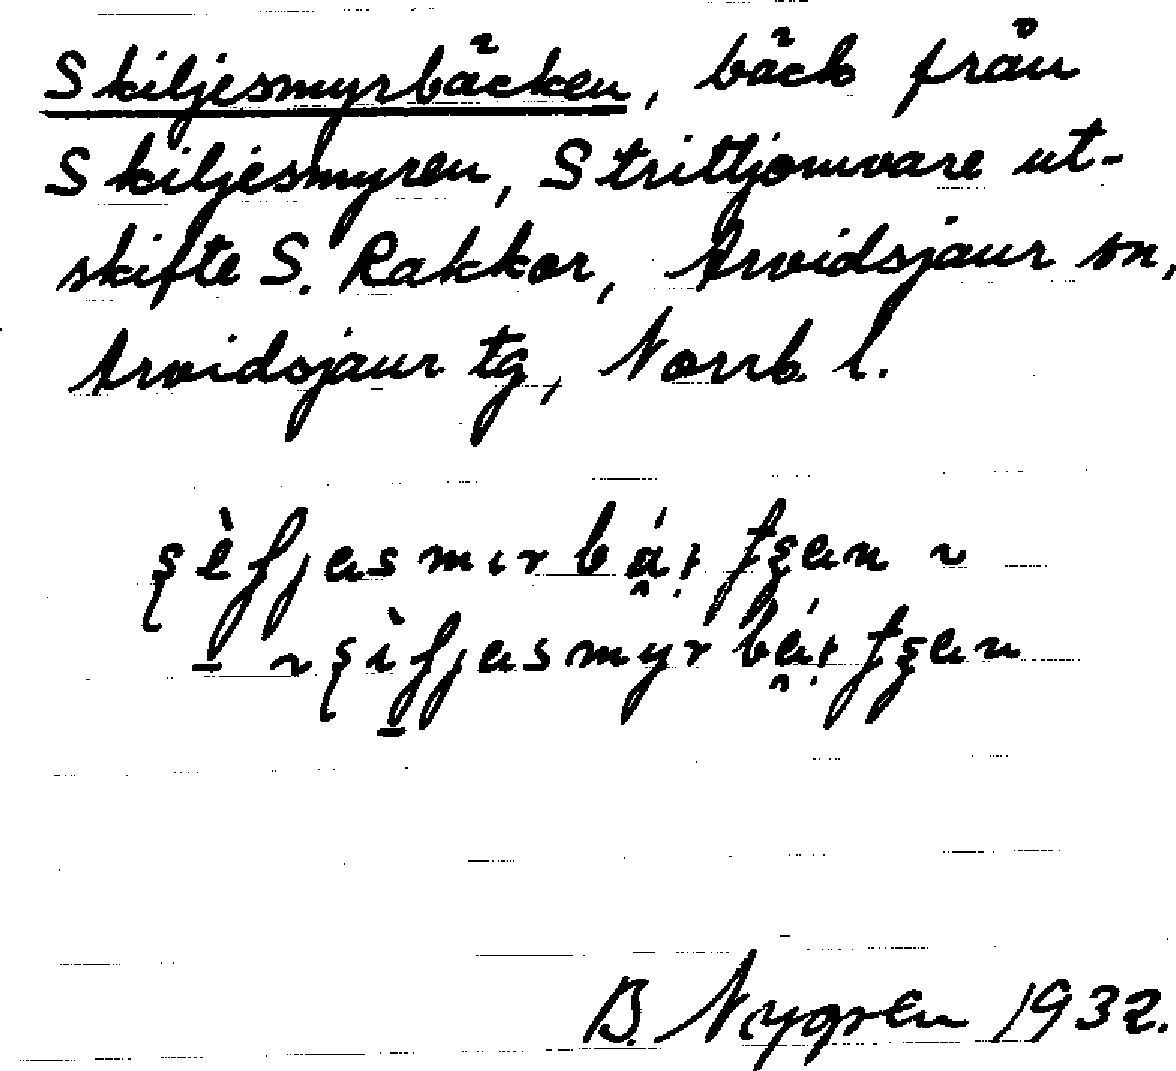 Skiljesmyrbäcken, bäck från
Skiljesmyren, Strittjomvare ut-
skifte S. Rakkor, Arvidsjaur sn,
Arvidsjaur tg, Norrb l.
B. Nygren 1932.